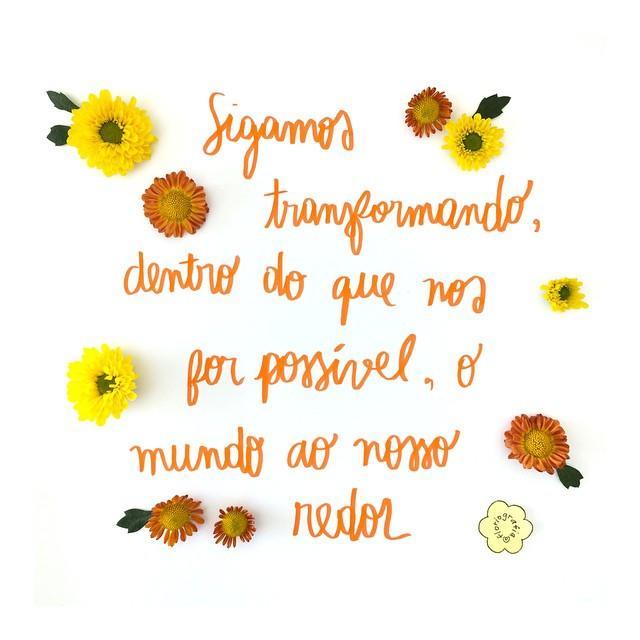 Sigamos
transformando,
dentro do que nos
for possível, o
mundo ao nosso
redor
@floriografia